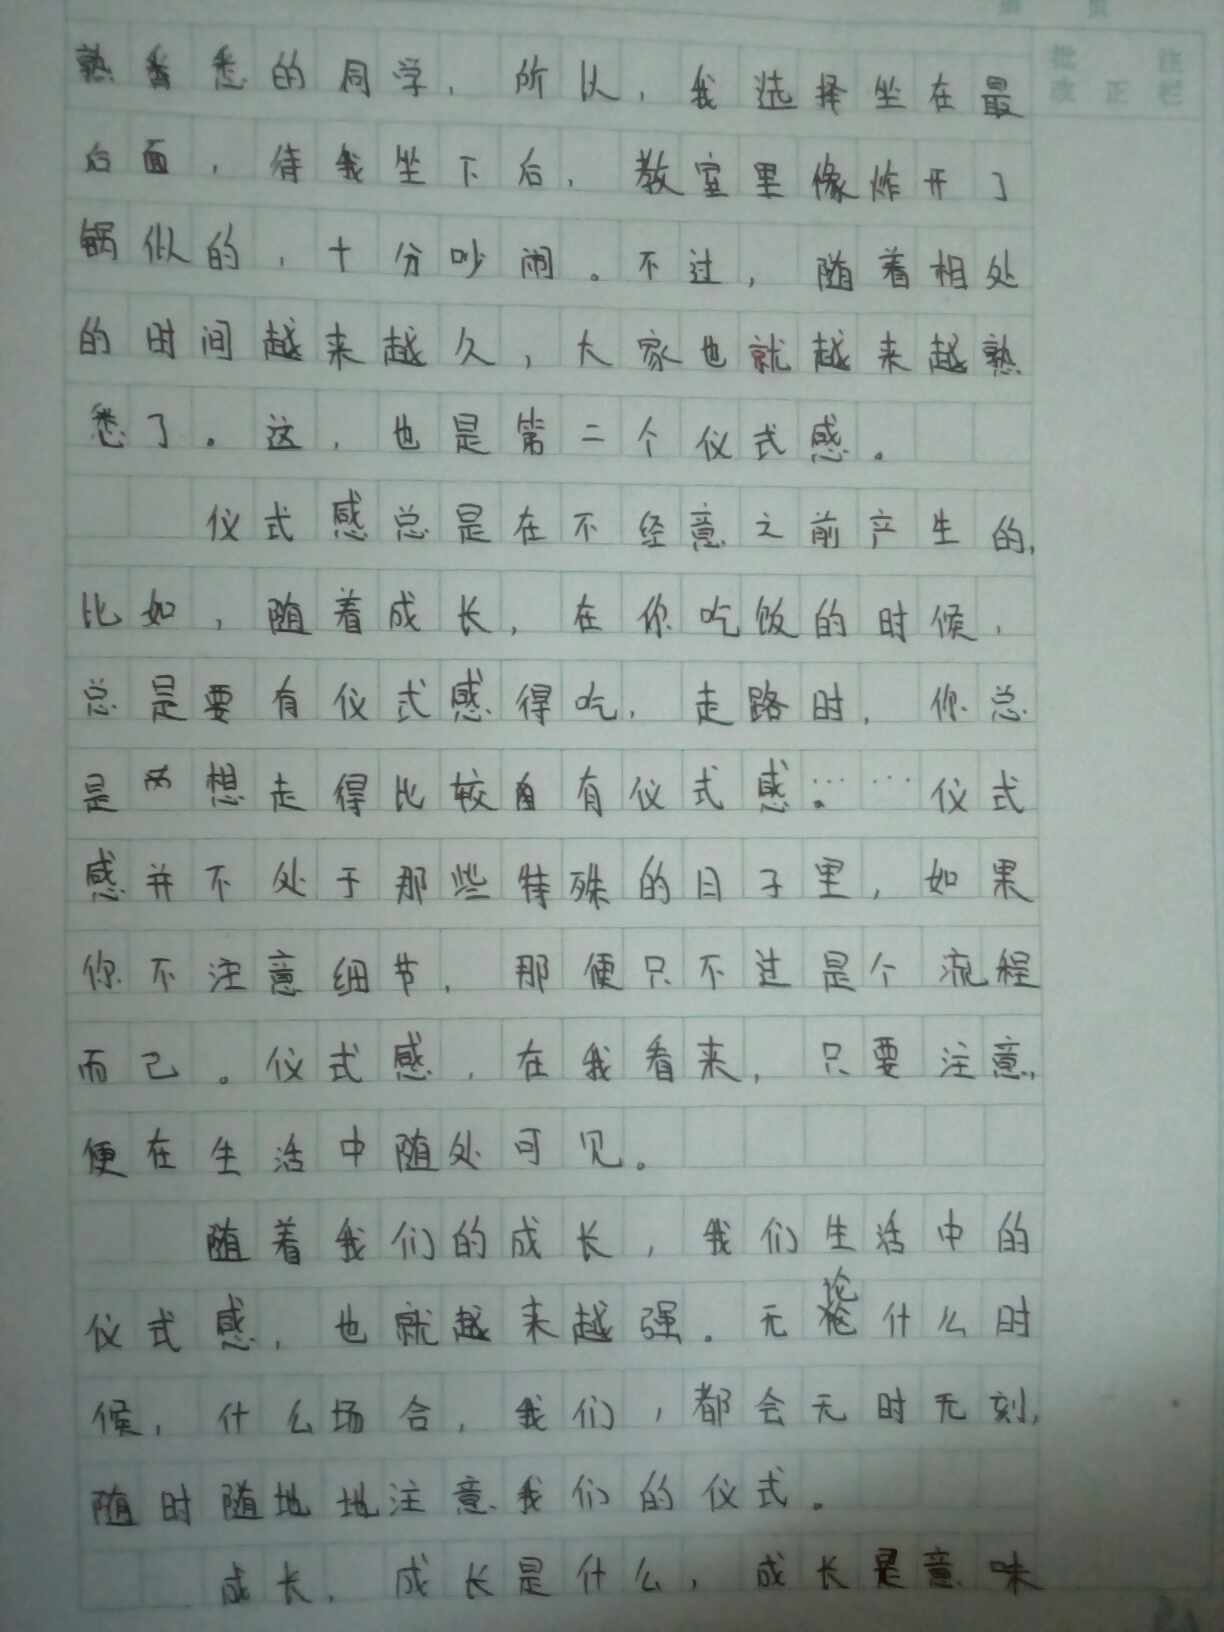 熟悉的同学，所以，我选择坐在最
后面，待我坐下后，教室里像炸开了
锅似的，十分吵闹。不过，随着相处
的时间越来越久，大家也就越来越熟
悉了。这，也是第二个仪式感。
仪式感总是在不经意之前产生的，
比如，随着成长，在你吃饭的时候，
总是要有仪式感得吃，走路时，你总
是想走得比较有仪式感。……仪式
感并不处于那些特殊的日子里，如果
你不注意细节，那便只不过是个流程
而己。仪式感，在我看来，只要注意，
便在生活中随处可见。
随着我们的成长，我们生活中的
仪式感，也就越来越强。无论什么时
候，什么场合，我们，都会无时无刻，
随时随地地注意我们的仪式。
成长，成长是什么，成长是意味